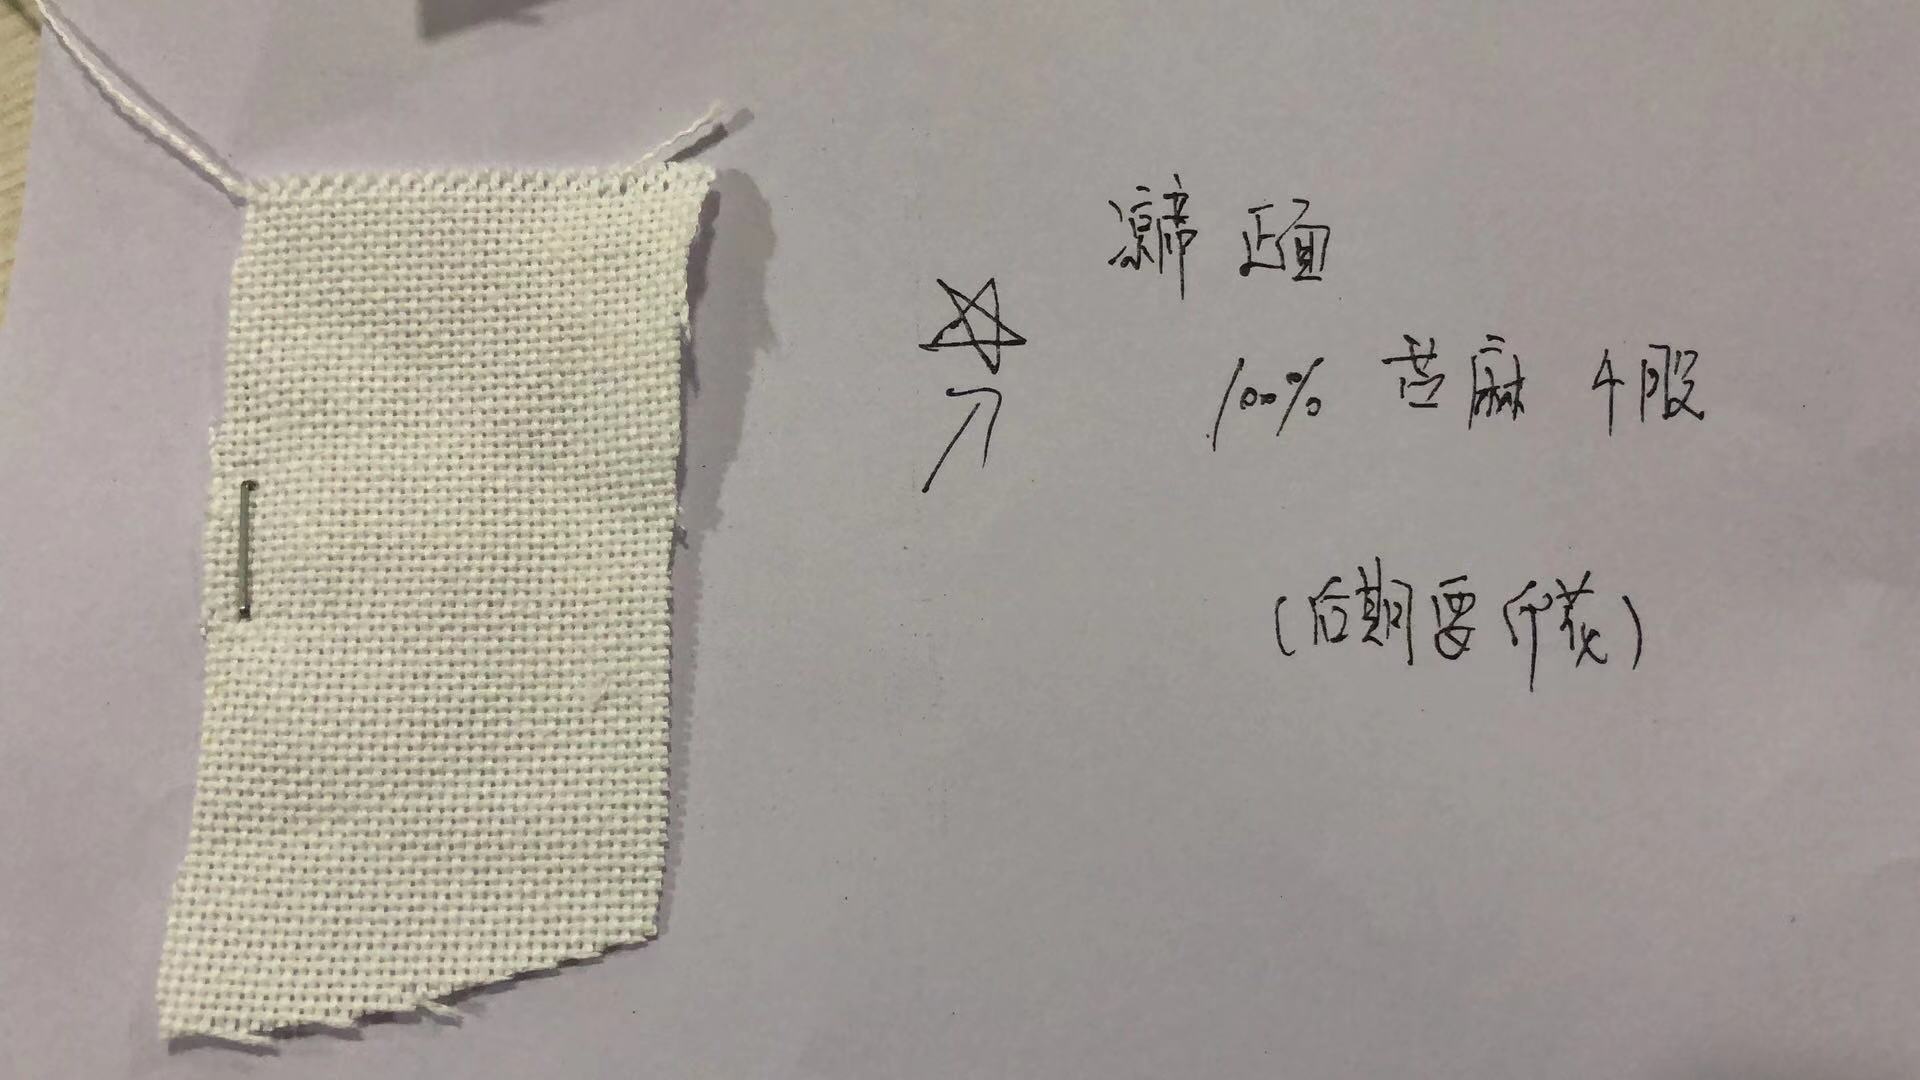 凉席 正面
100% 苎麻 4股
(后期要印花)